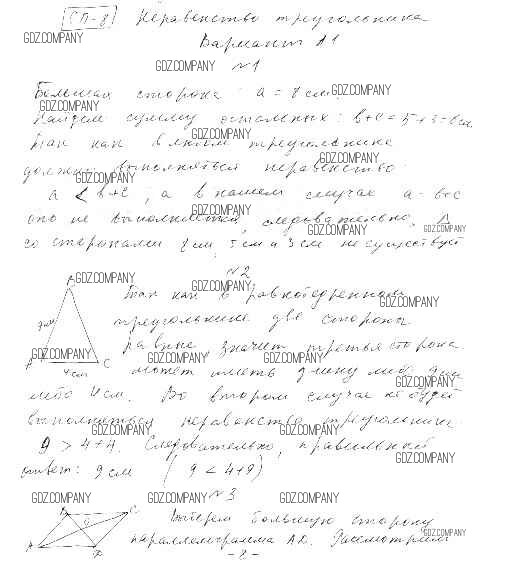 СП-8 Неравенство треугольника
Вариант А1
GDZ.COMPANY
№1
GDZ.COMPANY
Большая сторона: a = 8 см.
GDZ.COMPANY
GDZ.COMPANY
Найдем сумму остальных: b+c = 5+3 = 8 см
GDZ.COMPANY
Так как в любом треугольнике
GDZ.COMPANY
должно выполняться неравенство:
GDZ.COMPANY
a < b+c, а в нашем случае a = b+c
GDZ.COMPANY
оно не выполняется, следовательно, Δ
GDZ.COMPANY
GDZ.COMPANY
со сторонами 8 см, 5 см и 3 см не существует
№2
GDZ.COMPANY
GDZ.COMPANY
Так как в равнобедренном
GDZ.COMPANY
треугольнике две стороны
равны, значит третья сторона
GDZ.COMPANY
GDZ.COMPANY
GDZ.COMPANY
A C
4 см
может иметь длину либо 9 см
GDZ.COMPANY
либо 4 см. Во втором случае не будет
выполняться неравенство треугольника
GDZ.COMPANY
GDZ.COMPANY
9 > 4+4. Следовательно, правильный
GDZ.COMPANY
ответ: 9 см (9 < 4+9)
GDZ.COMPANY
GDZ.COMPANY
№3
GDZ.COMPANY
B C
O
Выберем большую сторону
GDZ.COMPANY
A D
параллелограмма AD. Рассмотрим
- 2 -